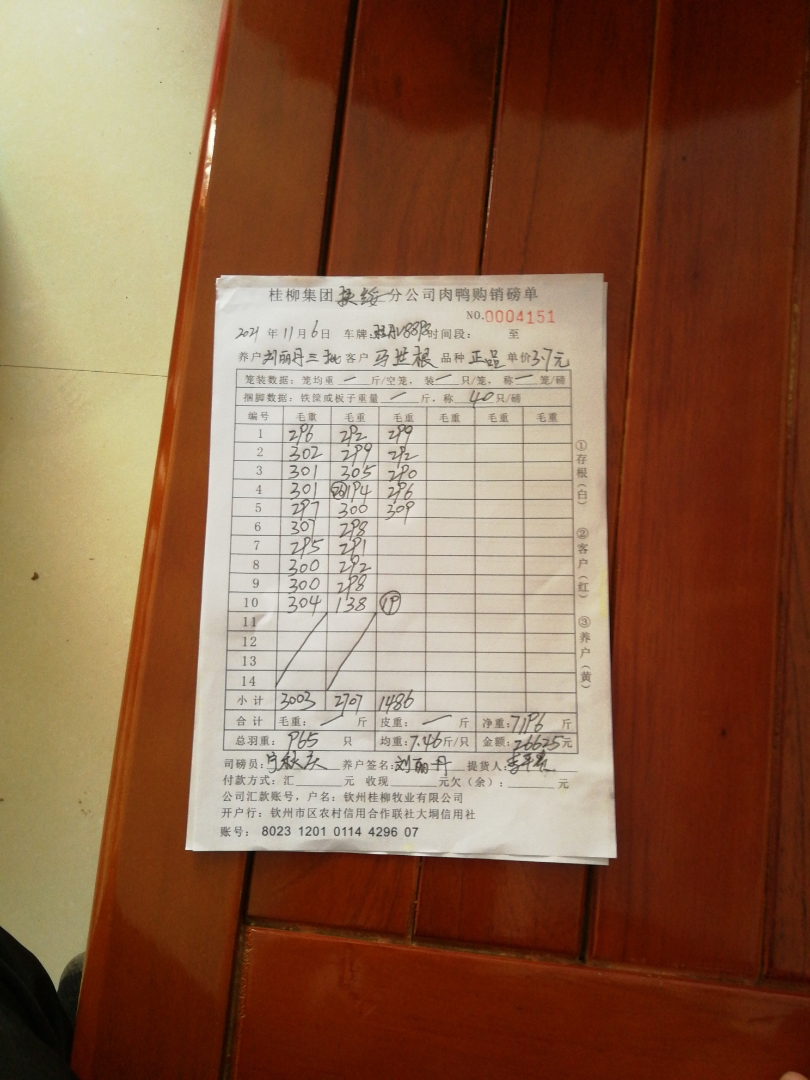 桂柳集团 扶绥 分公司肉鸭购销磅单
NO.0004151
2021 年 11 月 6 日 车牌: 时间段: 至
养户 刘丽丹三批 客户 马世根 品种 正品 单价 3.7元
笼装数据: 笼均重 — 斤/空笼, 装 — 只/笼, 称 — 笼/磅
捆脚数据: 铁筐或板子重量 — 斤, 称 40 只/磅
编号 毛重 毛重 毛重 毛重 毛重 毛重
1 296 292 299
2 302 299 292
3 301 305 290
4 301 194 296
5 297 300 309
6 307 298
7 295 291
8 300 292
9 300 298
10 304 138 19
11
12
13
14
小计 3003 2707 1486
合计 毛重: — 斤 皮重: — 斤 净重: 7196 斤
总羽重: 965 只 均重: 7.46 斤/只 金额: 26625 元
司磅员: 养户签名: 刘丽丹 提货人:
付款方式: 汇 元 收现 元欠(余): 元
公司汇款账号, 户名: 钦州桂柳牧业有限公司
开户行: 钦州市区农村信用合作联社大垌信用社
账号: 8023 1201 0114 4296 07
①存根(白)
②客户(红)
③养户(黄)